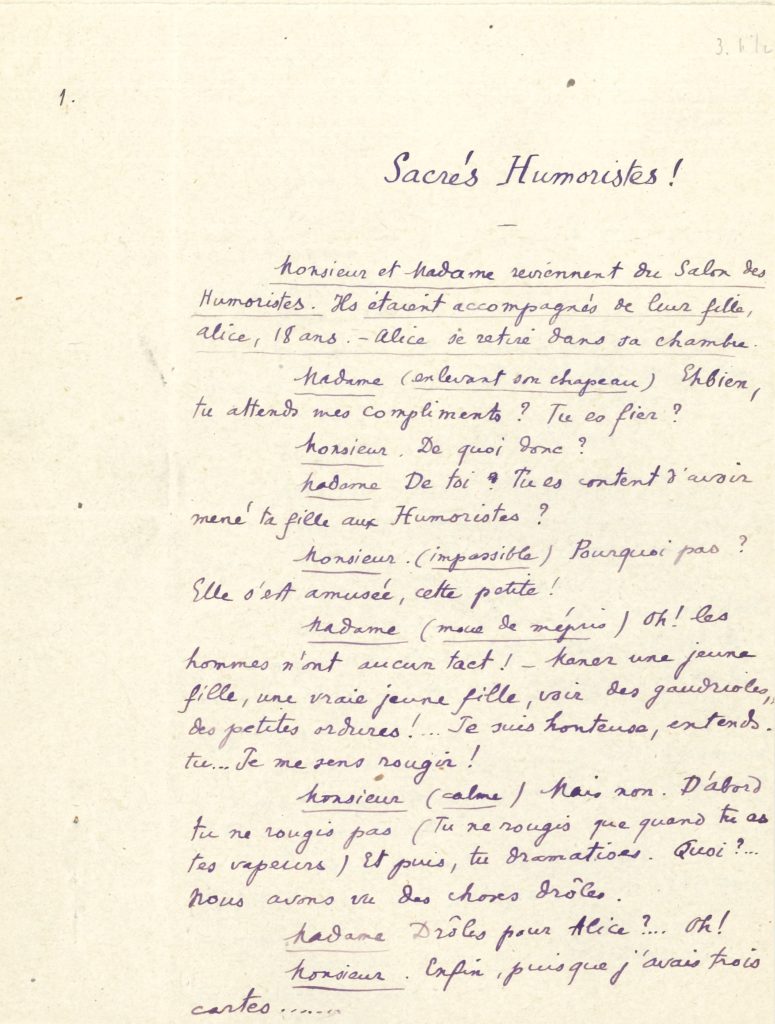 1.
Sacrés Humoristes !
Monsieur et Madame reviennent du Salon des
Humoristes. Ils étaient accompagnés de leur fille,
Alice, 18 ans. - Alice se retire dans sa chambre.
Madame (enlevant son chapeau) Ehbien,
tu attends mes compliments ? Tu es fier ?
Monsieur. De quoi donc ?
Madame De toi ? Tu es content d'avoir
mené ta fille aux Humoristes ?
Monsieur. (impassible) Pourquoi pas ?
Elle s'est amusée, cette petite !
Madame (moue de mépris) Oh! les
hommes n'ont aucun tact ! - Mener une jeune
fille, une vraie jeune fille, voir des gaudrioles,
des petites ordures !... Je suis honteuse, entends-
tu... Je me sens rougir !
Monsieur (calme) Mais non. D'abord
tu ne rougis pas (Tu ne rougis que quand tu as
tes vapeurs) Et puis, tu dramatises. Quoi ?...
Nous avons vu des choses drôles.
Madame Drôles pour Alice ?... Oh!
Monsieur. Enfin, puisque j'avais trois
cartes......